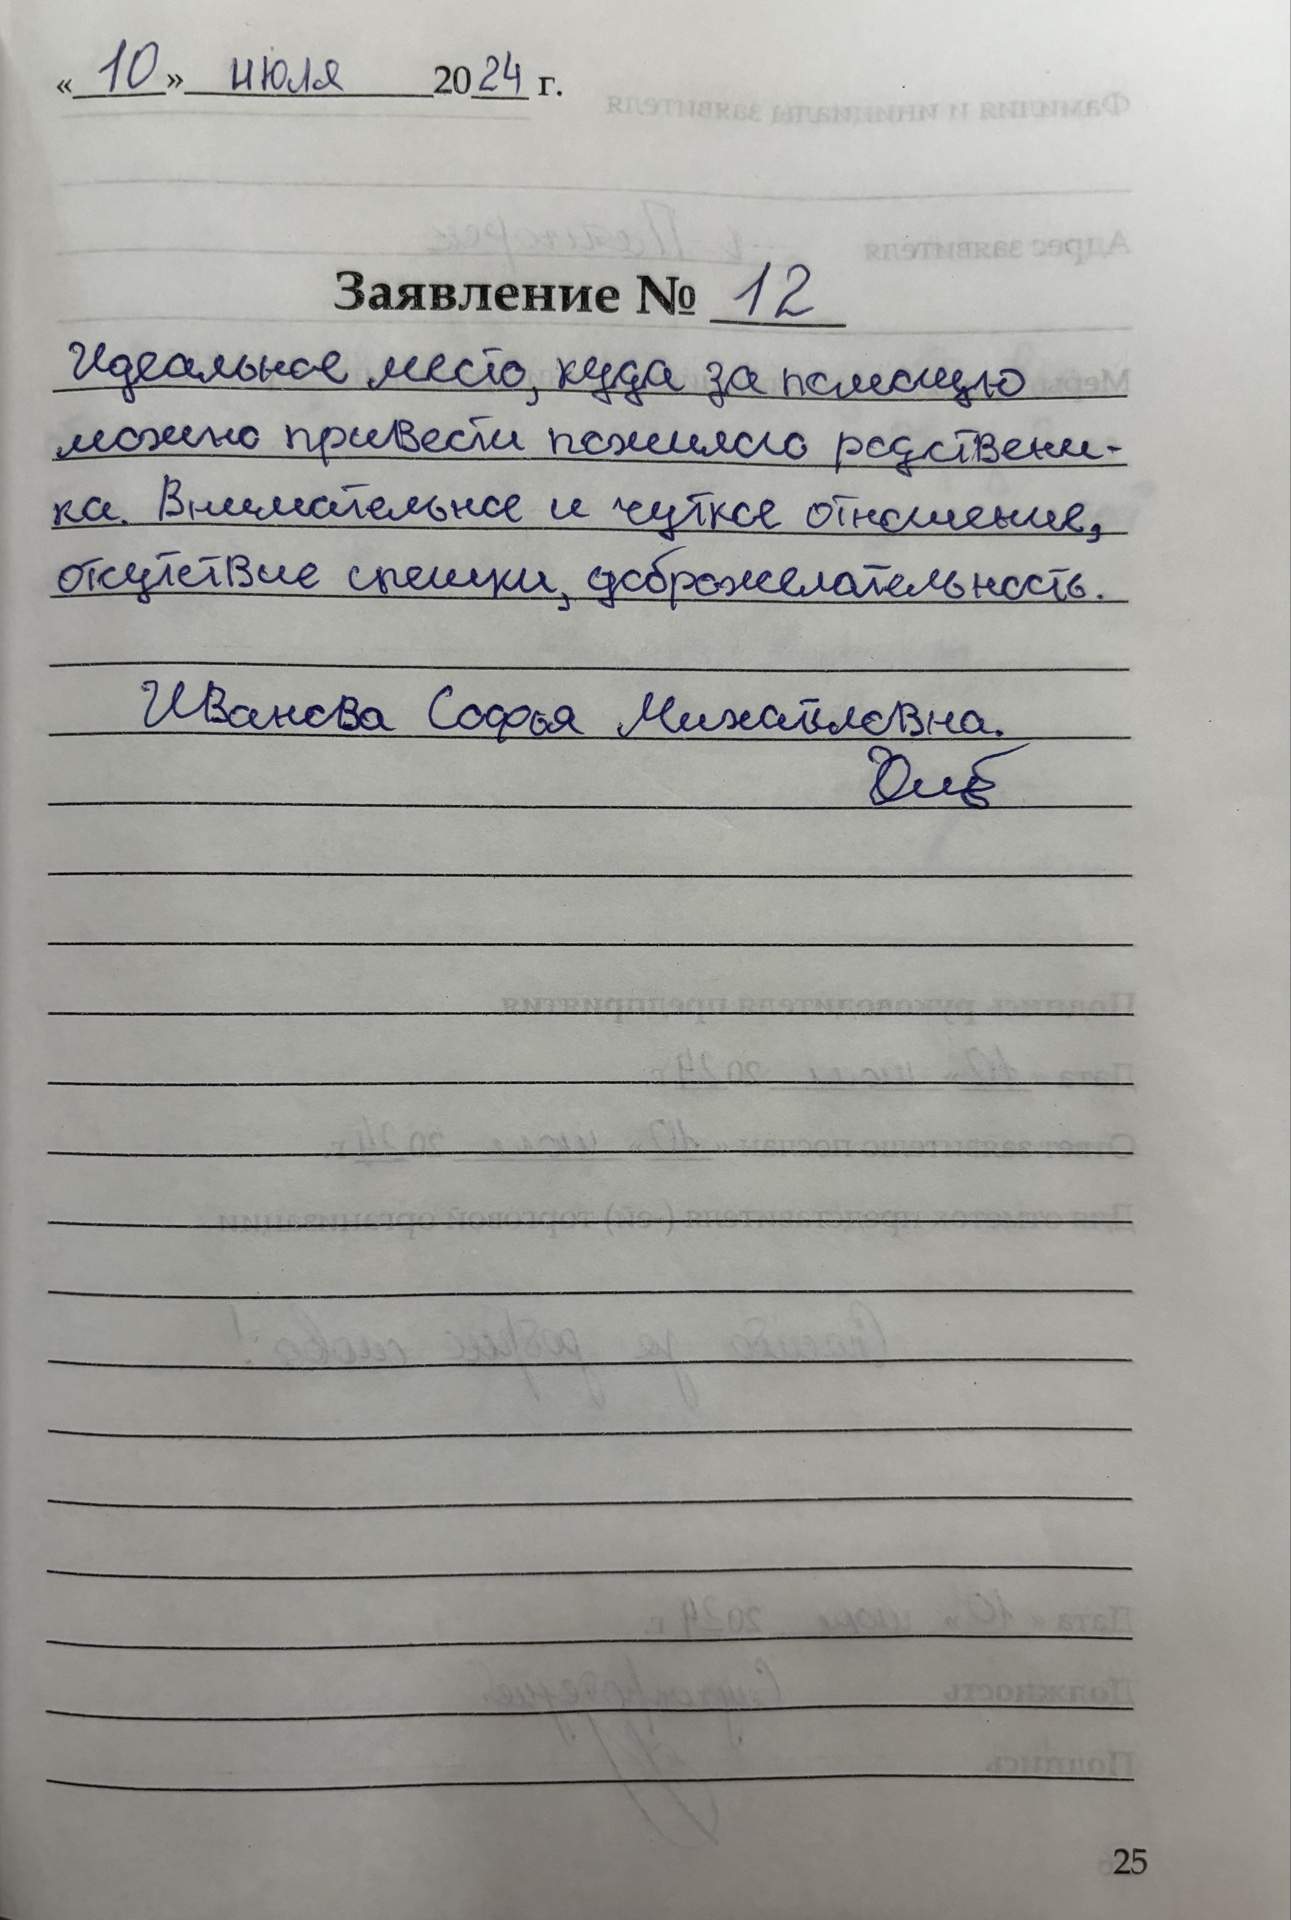 «10» июля 2024 г.
Заявление № 12
Идеальное место, куда за помощью
можно привести пожилого родствени-
ка. Внимательное и чуткое отношение,
отсутствие спешки, доброжелательность.
Иванова Софья Михайловна.
25